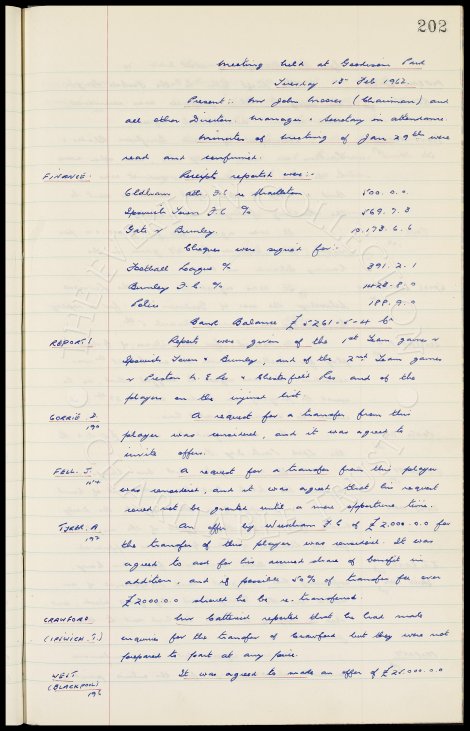 202
Meeting held at Goodison Park
Tuesday Feb 1962.
Present:- Mr John Moores (Chairman) and
all other Directors. Manager & Secretary in attendance
Minutes of meeting of Jan 29th were
read and confirmed.
FINANCE. Receipts reported were:-
Oldham Ath. F.C. Middleton 500.0.0
Ipswich Town F.C. % 569.7.3
Gate v Burnley. 10,173.6.6
Cheques were signed for:-
Football League % 391.2.1
Burnley F.C. % 1428.8.0
Police 188.9.0
Bank Balance £5261-5-4
REPORT! Report was given of the 1st Team games v
Ipswich Town & Burnley, and of the 2nd Team games
v Preston N.E. Res & Chesterfield Res and of the
players on the injured list.
GORRIE. D. A request for a transfer from this
190
player was considered, and it was agreed to
invite offers.
FELL. J. A request for a transfer from this player
was considered, and it was agreed that his request
would not be granted until a more opportune time.
TYRER. A. An offer by Wrexham F.C. of £2,000.0.0 for
192
the transfer of this player was considered. It was
agreed to ask for his accrued share of benefit in
addition, and if possible 50% of transfer fee over
£2000.0.0 should he be re-transferred.
CRAWFORD Mr Catterick reported that he had made
(IPSWICH.T.) enquiries for the transfer of Crawford but they were not
prepared to part at any price.
WEST It was agreed to make an offer of £25,000.0.0
(BLACKPOOL)
THE EVERTON COLLECTION